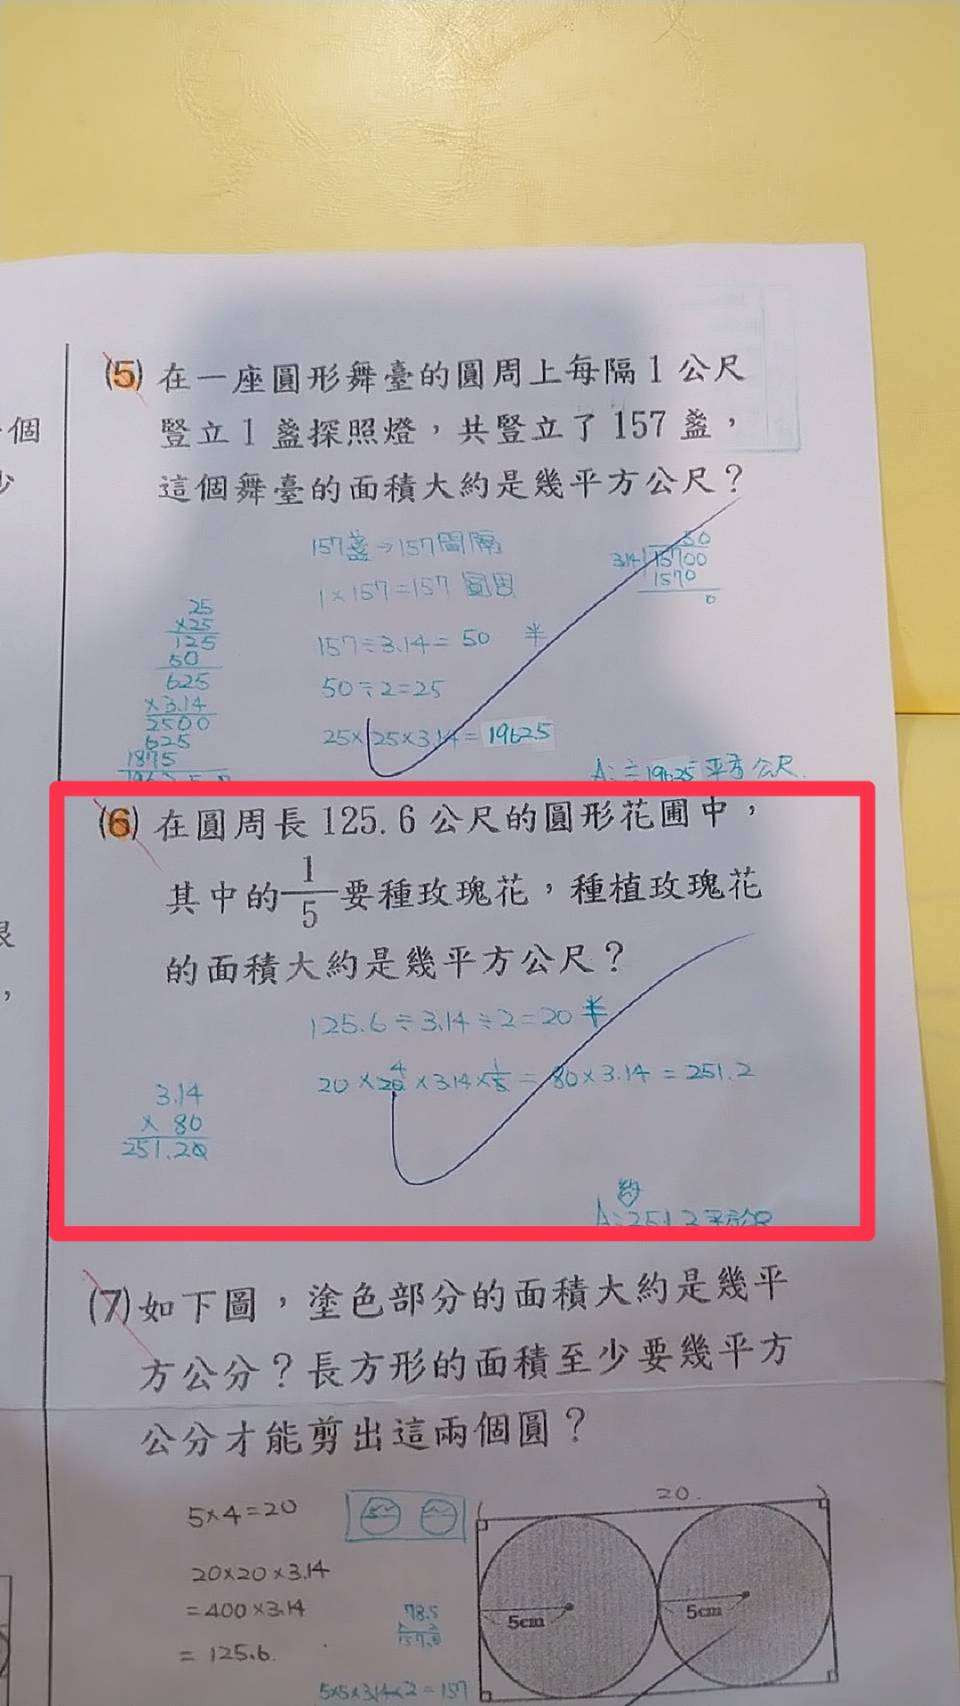 個
少
(5) 在一座圓形舞臺的圓周上每隔1公尺
豎立1盞探照燈，共豎立了157盞，
這個舞臺的面積大約是幾平方公尺？
157盞→157間隔
1×157=157 圓周
157÷3.14=50 半
50÷2=25
25×25×3.14=19625
50
3.14 15700
1570
0
25
×25
125
50
625
×3.14
2500
625
1875
A:≒19625平方公尺
(6) 在圓周長125.6公尺的圓形花圃中，
其中的1/5要種玫瑰花，種植玫瑰花
的面積大約是幾平方公尺？
125.6÷3.14÷2=20半
4
20×20×3.14×1/5=80×3.14=251.2
3.14
× 80
251.20
約
A:251.2平方公尺
，
(7) 如下圖，塗色部分的面積大約是幾平
方公分？長方形的面積至少要幾平方
公分才能剪出這兩個圓？
5×4=20
20×20×3.14
=400×3.14
=125.6
78.5
157.0
5×5×3.14×2=157
20
5cm
5cm